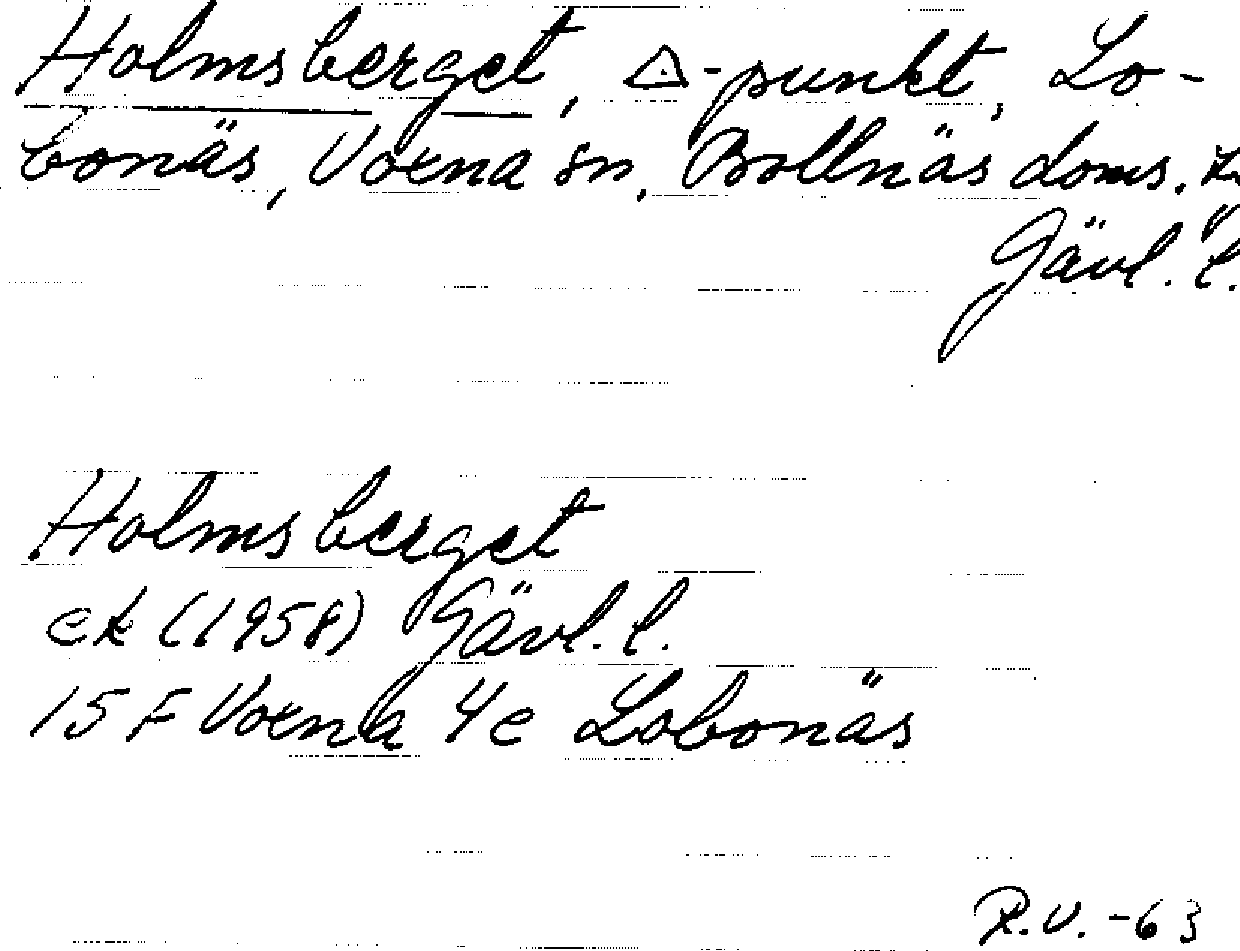 Holmsberget, △-punkt, Lo-
bonäs, Voxna sn, Bollnäs doms.
Gävl. l.
Holmsberget
ek (1958) Gävl. l.
15 F Voxna 4e Lobonäs
R.V. -63